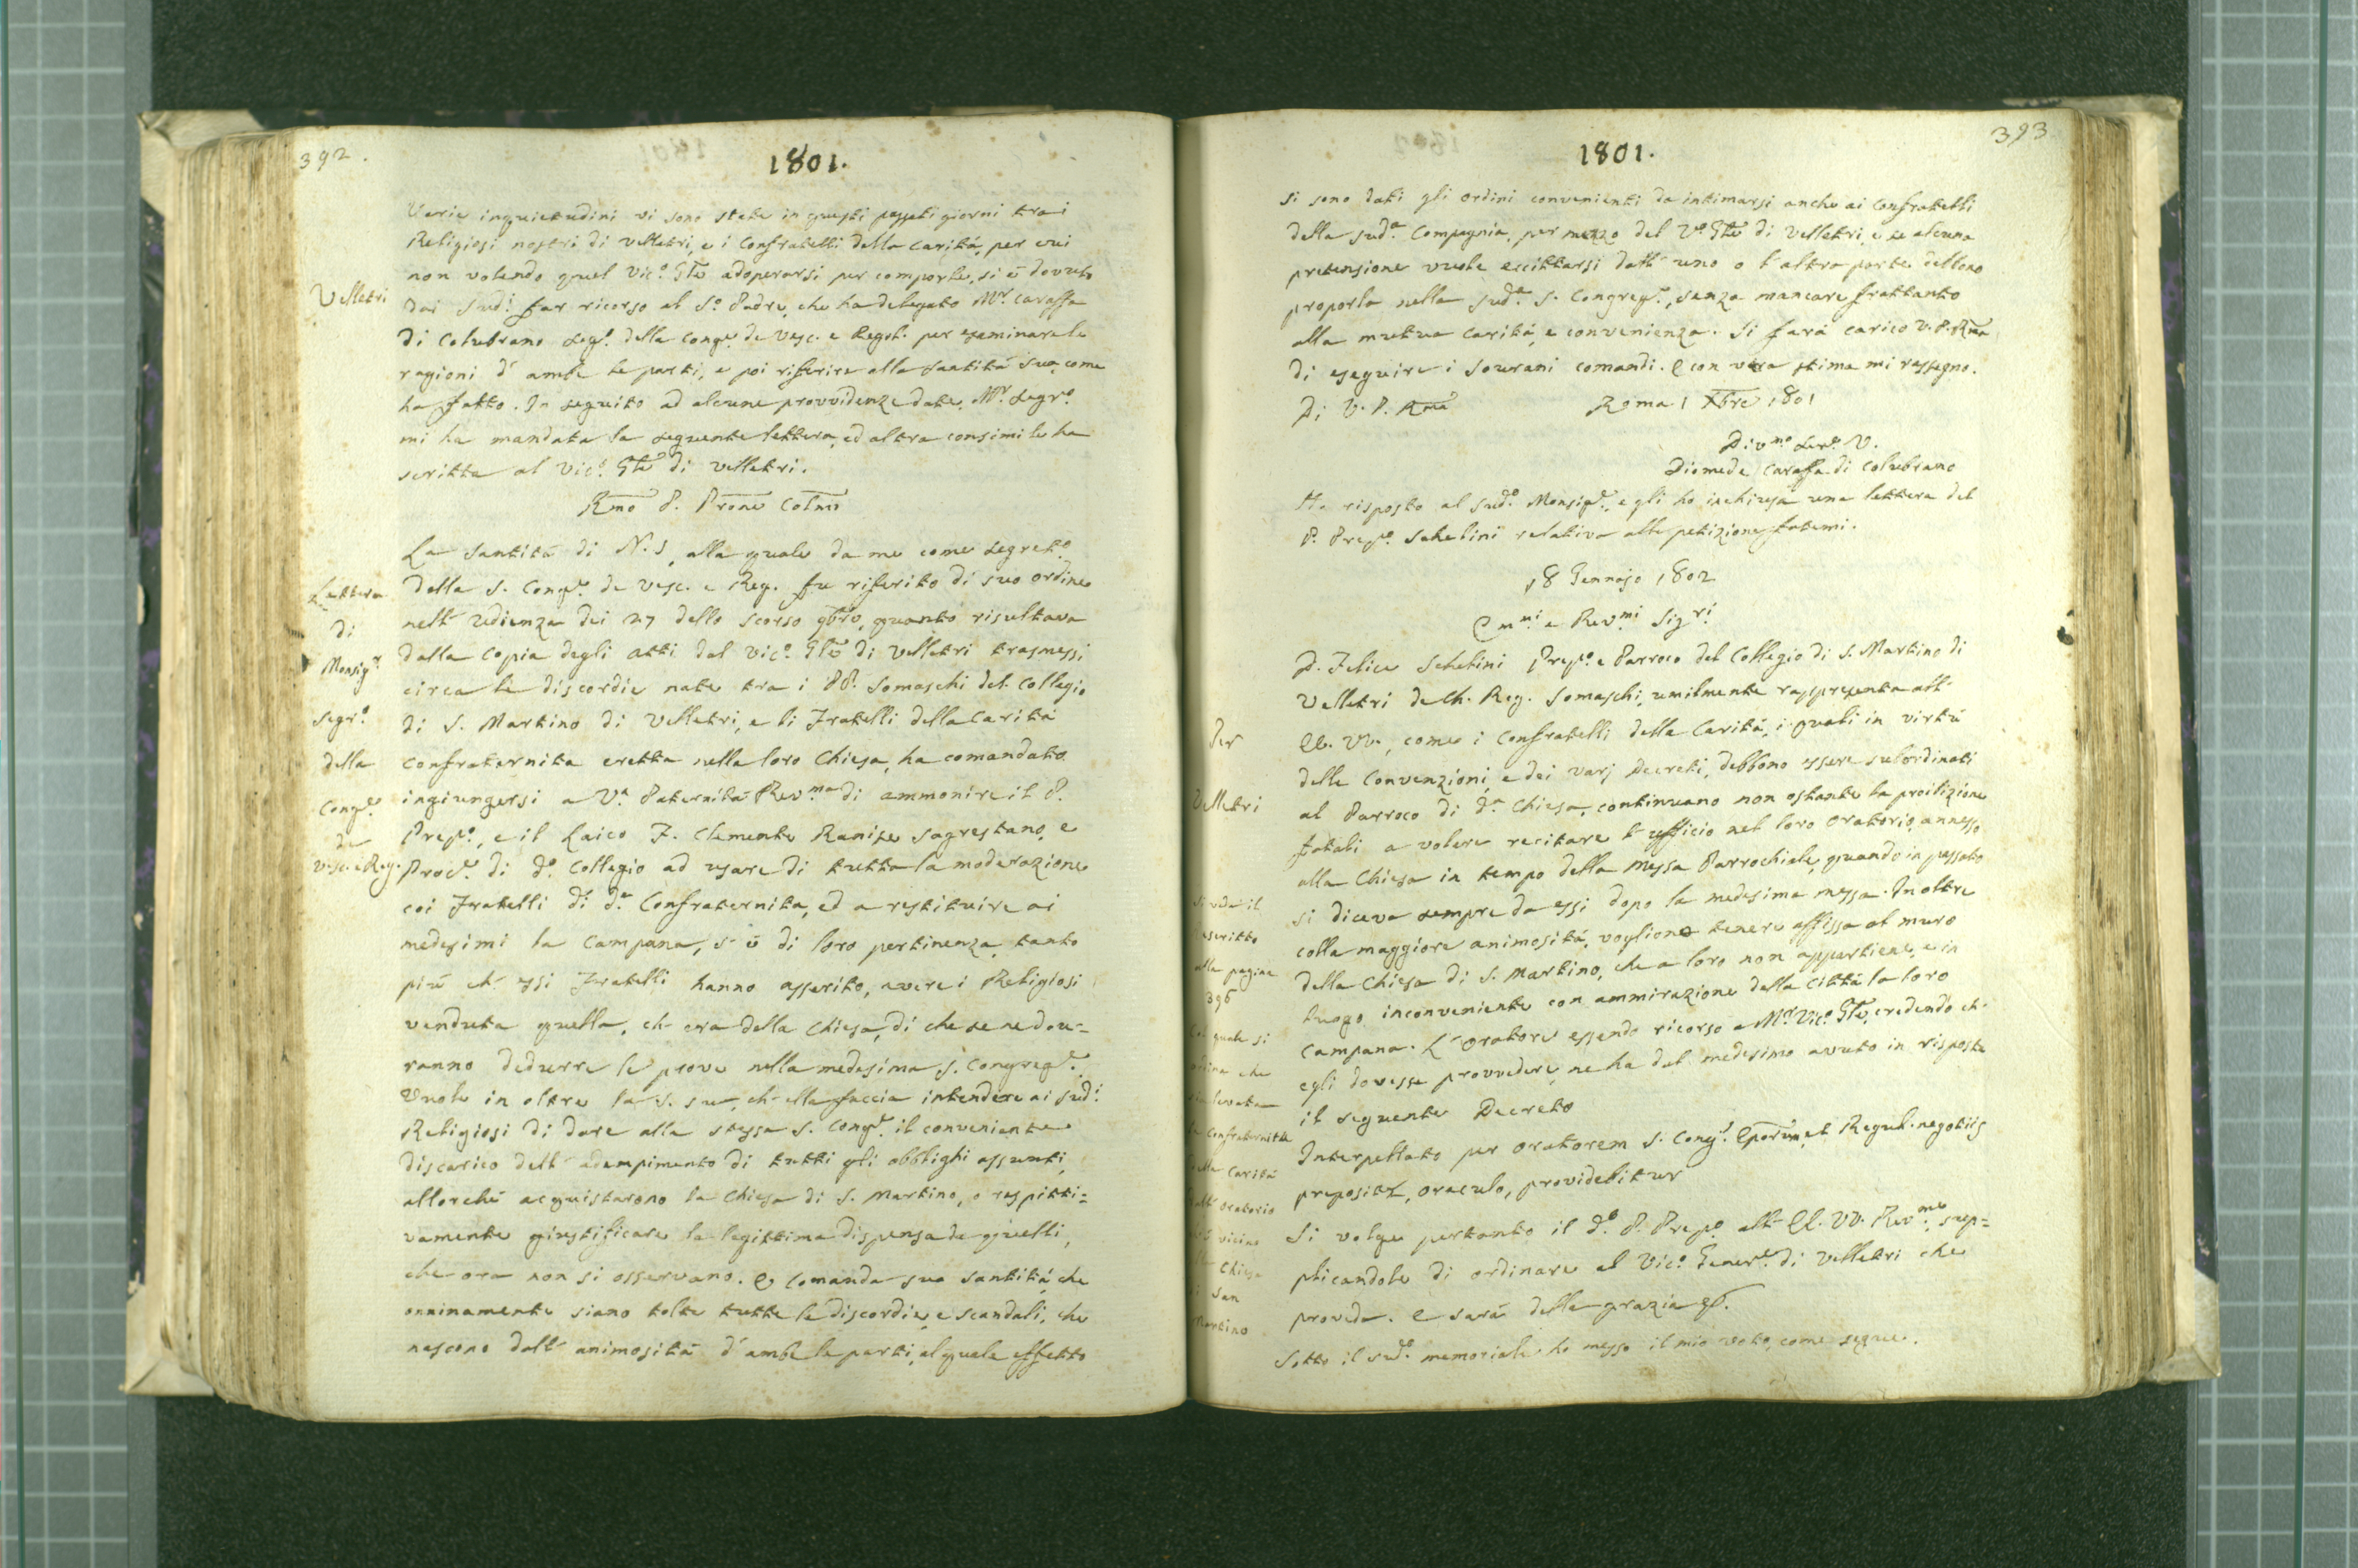 392.
1801.
Varie inquietudini vi sono state in questi passati giorni tra i
Religiosi nostri di Velletri, e i Confratelli della Carità, per cui
non volendo quel Vic.º Gñle adoperarsi per comporle, si è dovuto
Velletri
dai Sud.i far ricorso al S.º Padre, che ha delegato M.r Caraffa
di Colubrano Seg.º della Cong.e de Vesc. e Regol. per esaminare le
ragioni d'ambe le parti, e poi riferire alla Santità Sua, come
ha fatto. In seguito ad alcune provvidenze date, M.r Segr.º
mi ha mandata la seguente lettera, ed altra consimile ha
scritta al Vic.º Gñle di Velletri.
Rmo P. Prone Colmo
La Santità di N.S, alla quale da me come Segret.º
Lettera
di
Monsig.r
Segr.º
della
Cong.e
de
Vesc. e Reg.
della S. Cong.e de Vesc. e Reg. fu riferito di suo ordine
nell'udienza dei 27 dello scorso 9bre, quanto risultava
dalla copia degli atti dal Vic.º Gñle di Velletri trasmessi
circa le discordie nate tra i PP. Somaschi del Collegio
di S. Martino di Velletri, e li Fratelli della Carità
Confraternita eretta nella loro Chiesa, ha comandato
ingiungersi a V.a Paternità Rev.ma di ammonire il P.
Prep.º, e il Laico F. Clemente Ranise sagrestano, e
Proc.e di d.º Collegio ad usare di tutta la moderazione
coi Fratelli di d.a Confraternita, ed a restituire ai
medesimi la Campana, s'è di loro pertinenza, tanto
più ch'essi Fratelli hanno asserito, avere i Religiosi
venduta quella, ch'era della Chiesa, di che se ne dov=
ranno dedurre le prove nella medesima S. Congreg.e
Vuole in oltre la S. Sua, ch'ella faccia intendere ai sud.i
Religiosi di dare alla stessa S. Cong.e il conveniente
discarico dell'adempimento di tutti gli obblighi assunti,
allorchè acquistarono la Chiesa di S. Martino, o respitti=
vamente giustificare la legittima dispensa da quelli,
che ora non si osservano. E comanda sua Santità, che
onninamente siano tolte tutte le discordie, e scandali, che
nascono dall'animosità d'ambe le parti, al quale effetto
393
1801.
si sono dati gli ordini convenienti da intimarsi anche ai Confratelli
della sud.a Compagnia, per mezzo del V.º Gñle di Velletri, e se alcuna
pretensione vuole eccittarsi dall'una o l'altra parte debbono
proporla nella sud.a S. Congreg.e, senza mancare frattanto
alla mutua carità, e convenienza. Si farà carico V. P. Rma
di eseguire i Sovrani comandi. E con vera stima mi rassegno.
Di V. P. Rma Roma 1 Xbre 1801
Div.mo Ser.e V.
Diomede Caraffa di Colubrano
Ho risposto al sud.º Monsig.e, e gli ho inchiusa una lettera del
P. Prep.º Schelini relativa alla petizione fatemi.
18 Gennajo 1802
Em.mi e Rev.mi Sig.ri
D. Felice Schelini Prep.º e Parroco del Collegio di S. Martino di
Velletri de Ch. Reg. Somaschi, umilmente rappresenta all'
Per
Velletri
EE. VV., come i Confratelli della Carità, i quali in virtù
delle Convenzioni, e dei varj Decreti, debbono essere subordinati
al Parroco di d.a Chiesa, continuano non ostante la proibizione
fatali a volere recitare l'ufficio nel loro Oratorio, annesso
alla Chiesa in tempo della Messa Parrochiale, quando in passato
si diceva sempre da essi dopo la medesima messa. Inoltre
colla maggiore animosità, vogliono tenere affissa al muro
della Chiesa di S. Martino, che a loro non appartiene, e in
luogo inconveniente con ammirazione della città la loro
Campana. L'Oratore essendo ricorso a M.r Vic.º Gñle, credendo ch'
egli dovesse provvedere, ne ha dal medesimo avuto in risposta
il seguente Decreto
Si veda il
rescritto
alla pagina
396
quale si
ordina che
levata
Confraternita
Carità
oratorio
vicino
Chiesa
San
Martino
Interpellato per oratorem S. Cong.e Eporum, et Regul. negotiis
preposita, oraculo, providebitur
Si volge pertanto il d.º P. Prep.º all'EE. VV. Rev.me, sup=
plicandole di ordinare al Vic.º Gener.e di Velletri che
proveda. E sarà della grazia &c.
Sotto il sud.º memoriale ho messo il mio voto, come segue.